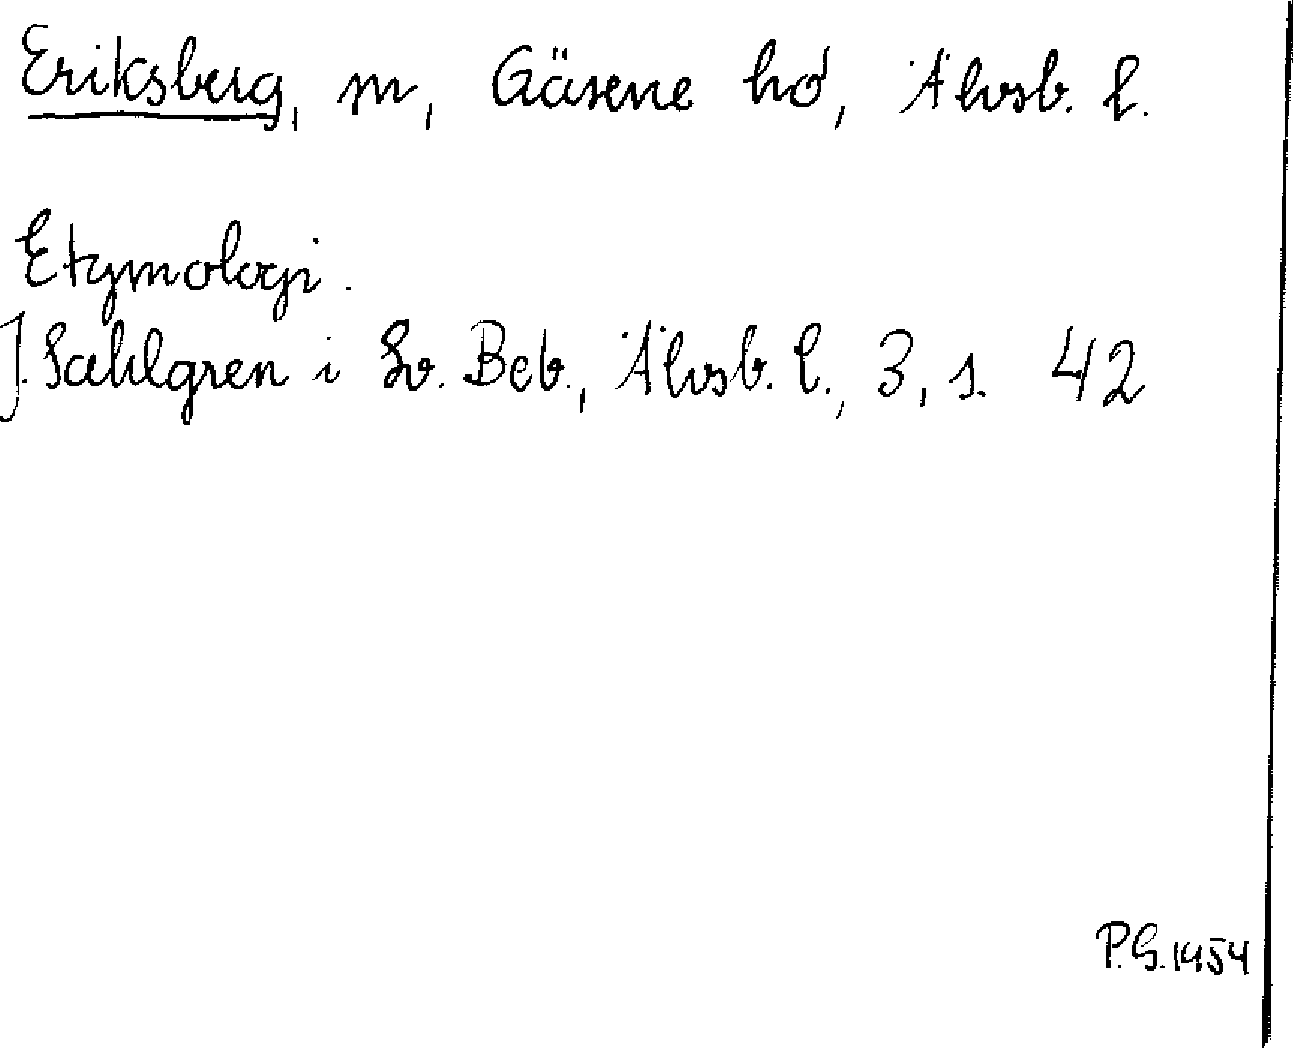 Eriksberg, sn, Gäsene hd, Älvsb. l.
Etymologi.
J. Sahlgren i Sv. Beb., Älvsb. l., 3, s. 42
P.G. 1954